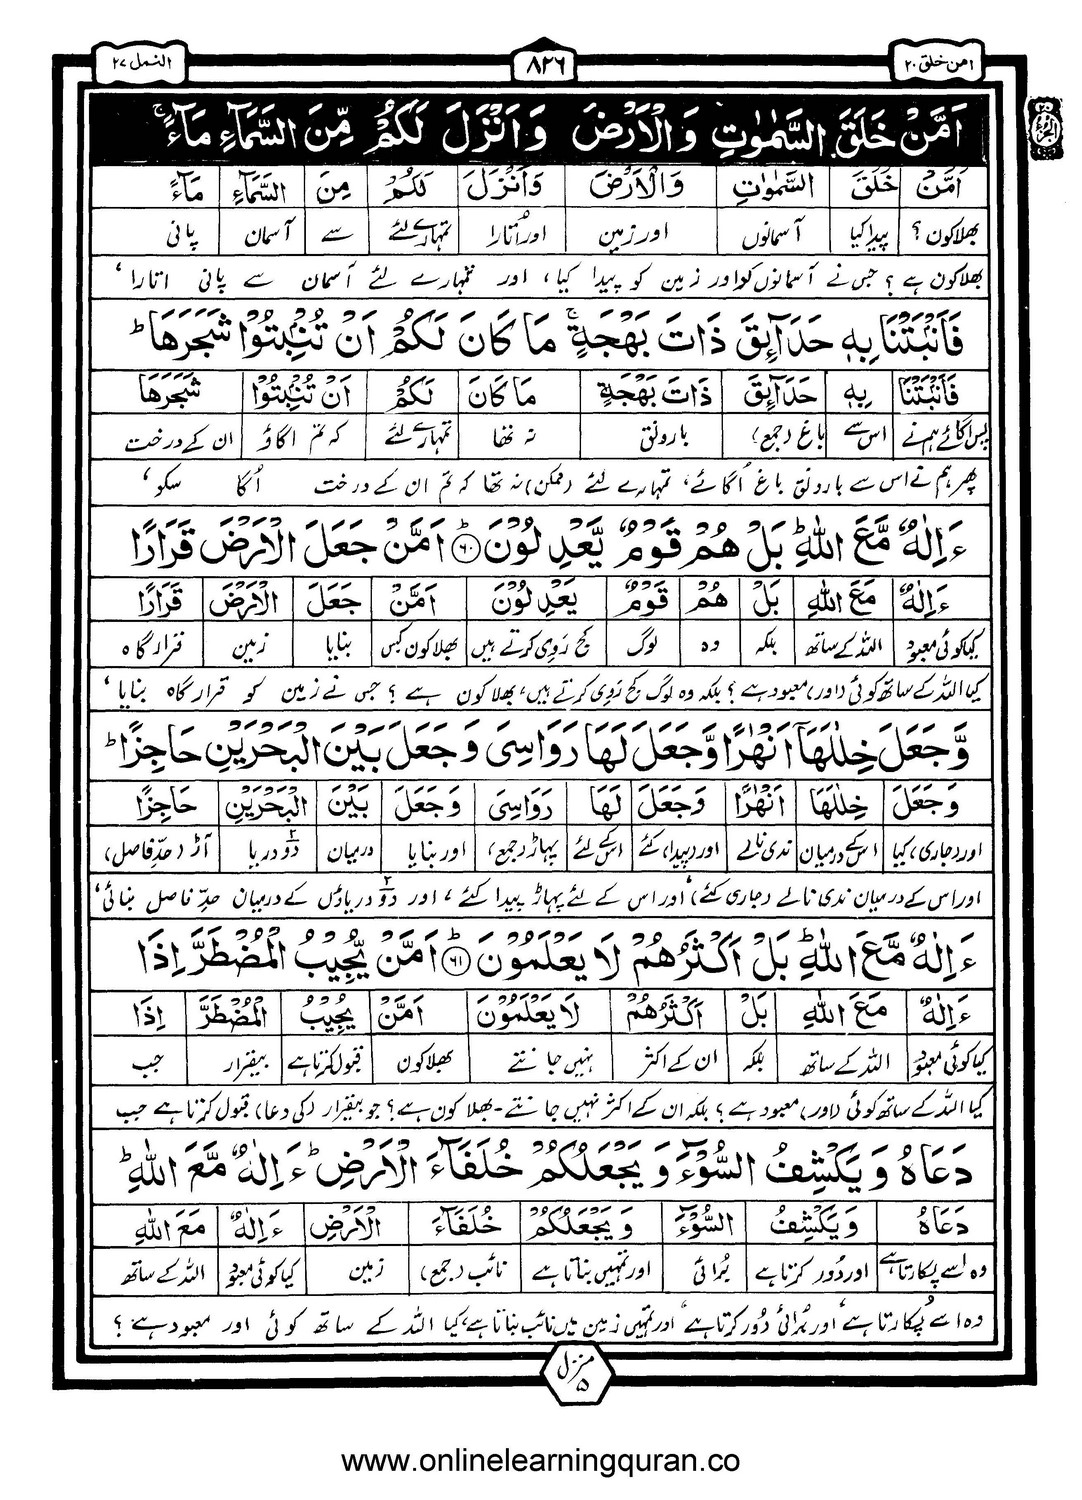 امن خلق ۲۰
۸۲۶
النمل ۲۷
اَمَّنْ خَلَقَ السَّمٰوٰتِ وَالْاَرْضَ وَاَنْزَلَ لَكُمْ مِّنَ السَّمَآءِ مَآءً ۚ
اَمَّنْ خَلَقَ السَّمٰوٰتِ وَالْاَرْضَ وَاَنْزَلَ لَكُمْ مِنَ السَّمَآءِ مَآءً
بھلا کون ؟ پیدا کیا آسمانوں اور زمین اور اُتارا تمہارے لئے سے آسمان پانی
بھلا کون ہے ؟ جس نے آسمانوں کو اور زمین کو پیدا کیا، اور تمہارے لئے آسمان سے پانی اتارا ،
فَاَنْۢبَتْنَا بِهٖ حَدَآئِقَ ذَاتَ بَهْجَةٍ ۚ مَا كَانَ لَكُمْ اَنْ تُنْۢبِتُوْا شَجَرَهَا ؕ
فَاَنْۢبَتْنَا بِهٖ حَدَآئِقَ ذَاتَ بَهْجَةٍ مَا كَانَ لَكُمْ اَنْ تُنْۢبِتُوْا شَجَرَهَا
پس اگائے ہم نے اس سے باغ (جمع) بارونق نہ تھا تمہارے لئے کہ تم اگاؤ ان کے درخت
پھر ہم نے اس سے بارونق باغ اُگائے، تمہارے لئے (ممکن) نہ تھا کہ تم ان کے درخت اُگا سکو ،
ءَاِلٰهٌ مَّعَ اللّٰهِ ؕ بَلْ هُمْ قَوْمٌ يَّعْدِلُوْنَ ؕ ۶۰ اَمَّنْ جَعَلَ الْاَرْضَ قَرَارًا
ءَاِلٰهٌ مَعَ اللّٰهِ بَلْ هُمْ قَوْمٌ يَعْدِلُوْنَ اَمَّنْ جَعَلَ الْاَرْضَ قَرَارًا
کیا کوئی معبود اللہ کے ساتھ بلکہ وہ لوگ کج روی کرتے ہیں بھلا کون کس بنایا زمین قرار گاہ
کیا اللہ کے ساتھ کوئی (اور) معبود ہے ؟ بلکہ وہ لوگ کج روی کرتے ہیں، بھلا کون ہے ؟ جس نے زمین کو قرار گاہ بنایا ،
وَّجَعَلَ خِلٰلَهَآ اَنْهٰرًا وَّجَعَلَ لَهَا رَوَاسِىَ وَجَعَلَ بَيْنَ الْبَحْرَيْنِ حَاجِزًا ؕ
وَجَعَلَ خِلٰلَهَا اَنْهٰرًا وَجَعَلَ لَهَا رَوَاسِىَ وَجَعَلَ بَيْنَ الْبَحْرَيْنِ حَاجِزًا
اور (جاری) کیا اس کے درمیان ندی نالے اور (پیدا) کئے اس کے لئے پہاڑ (جمع) اور بنایا درمیان دو دریا آڑ (حدِّ فاصل)
اور اس کے درمیان ندی نالے (جاری کئے) اور اس کے لئے پہاڑ پیدا کئے ، اور دو دریاؤں کے درمیان حدِّ فاصل بنائی،
ءَاِلٰهٌ مَّعَ اللّٰهِ ؕ بَلْ اَكْثَرُهُمْ لَا يَعْلَمُوْنَ ؕ ۶۱ اَمَّنْ يُّجِيْبُ الْمُضْطَرَّ اِذَا
ءَاِلٰهٌ مَعَ اللّٰهِ بَلْ اَكْثَرُهُمْ لَا يَعْلَمُوْنَ اَمَّنْ يُجِيْبُ الْمُضْطَرَّ اِذَا
کیا کوئی معبود اللہ کے ساتھ بلکہ ان کے اکثر نہیں جانتے بھلا کون قبول کرتا ہے بیقرار جب
کیا اللہ کے ساتھ کوئی (اور) معبود ہے ؟ بلکہ ان کے اکثر نہیں جانتے - بھلا کون ہے ؟ جو بیقرار (کی دعا) قبول کرتا ہے جب
دَعَاهُ وَيَكْشِفُ السُّوْٓءَ وَيَجْعَلُكُمْ خُلَفَآءَ الْاَرْضِ ؕ ءَاِلٰهٌ مَّعَ اللّٰهِ ؕ
دَعَاهُ وَيَكْشِفُ السُّوْٓءَ وَيَجْعَلُكُمْ خُلَفَآءَ الْاَرْضِ ءَاِلٰهٌ مَعَ اللّٰهِ
وہ اسے پکارتا ہے اور دُور کرتا ہے بُرائی اور تمہیں بناتا ہے نائب (جمع) زمین کیا کوئی معبود اللہ کے ساتھ
وہ اسے پُکارتا ہے، اور بُرائی دُور کرتا ہے، اور تمہیں زمین میں نائب بناتا ہے، کیا اللہ کے ساتھ کوئی اور معبود ہے ؟
منزل ۵
www.onlinelearningquran.co